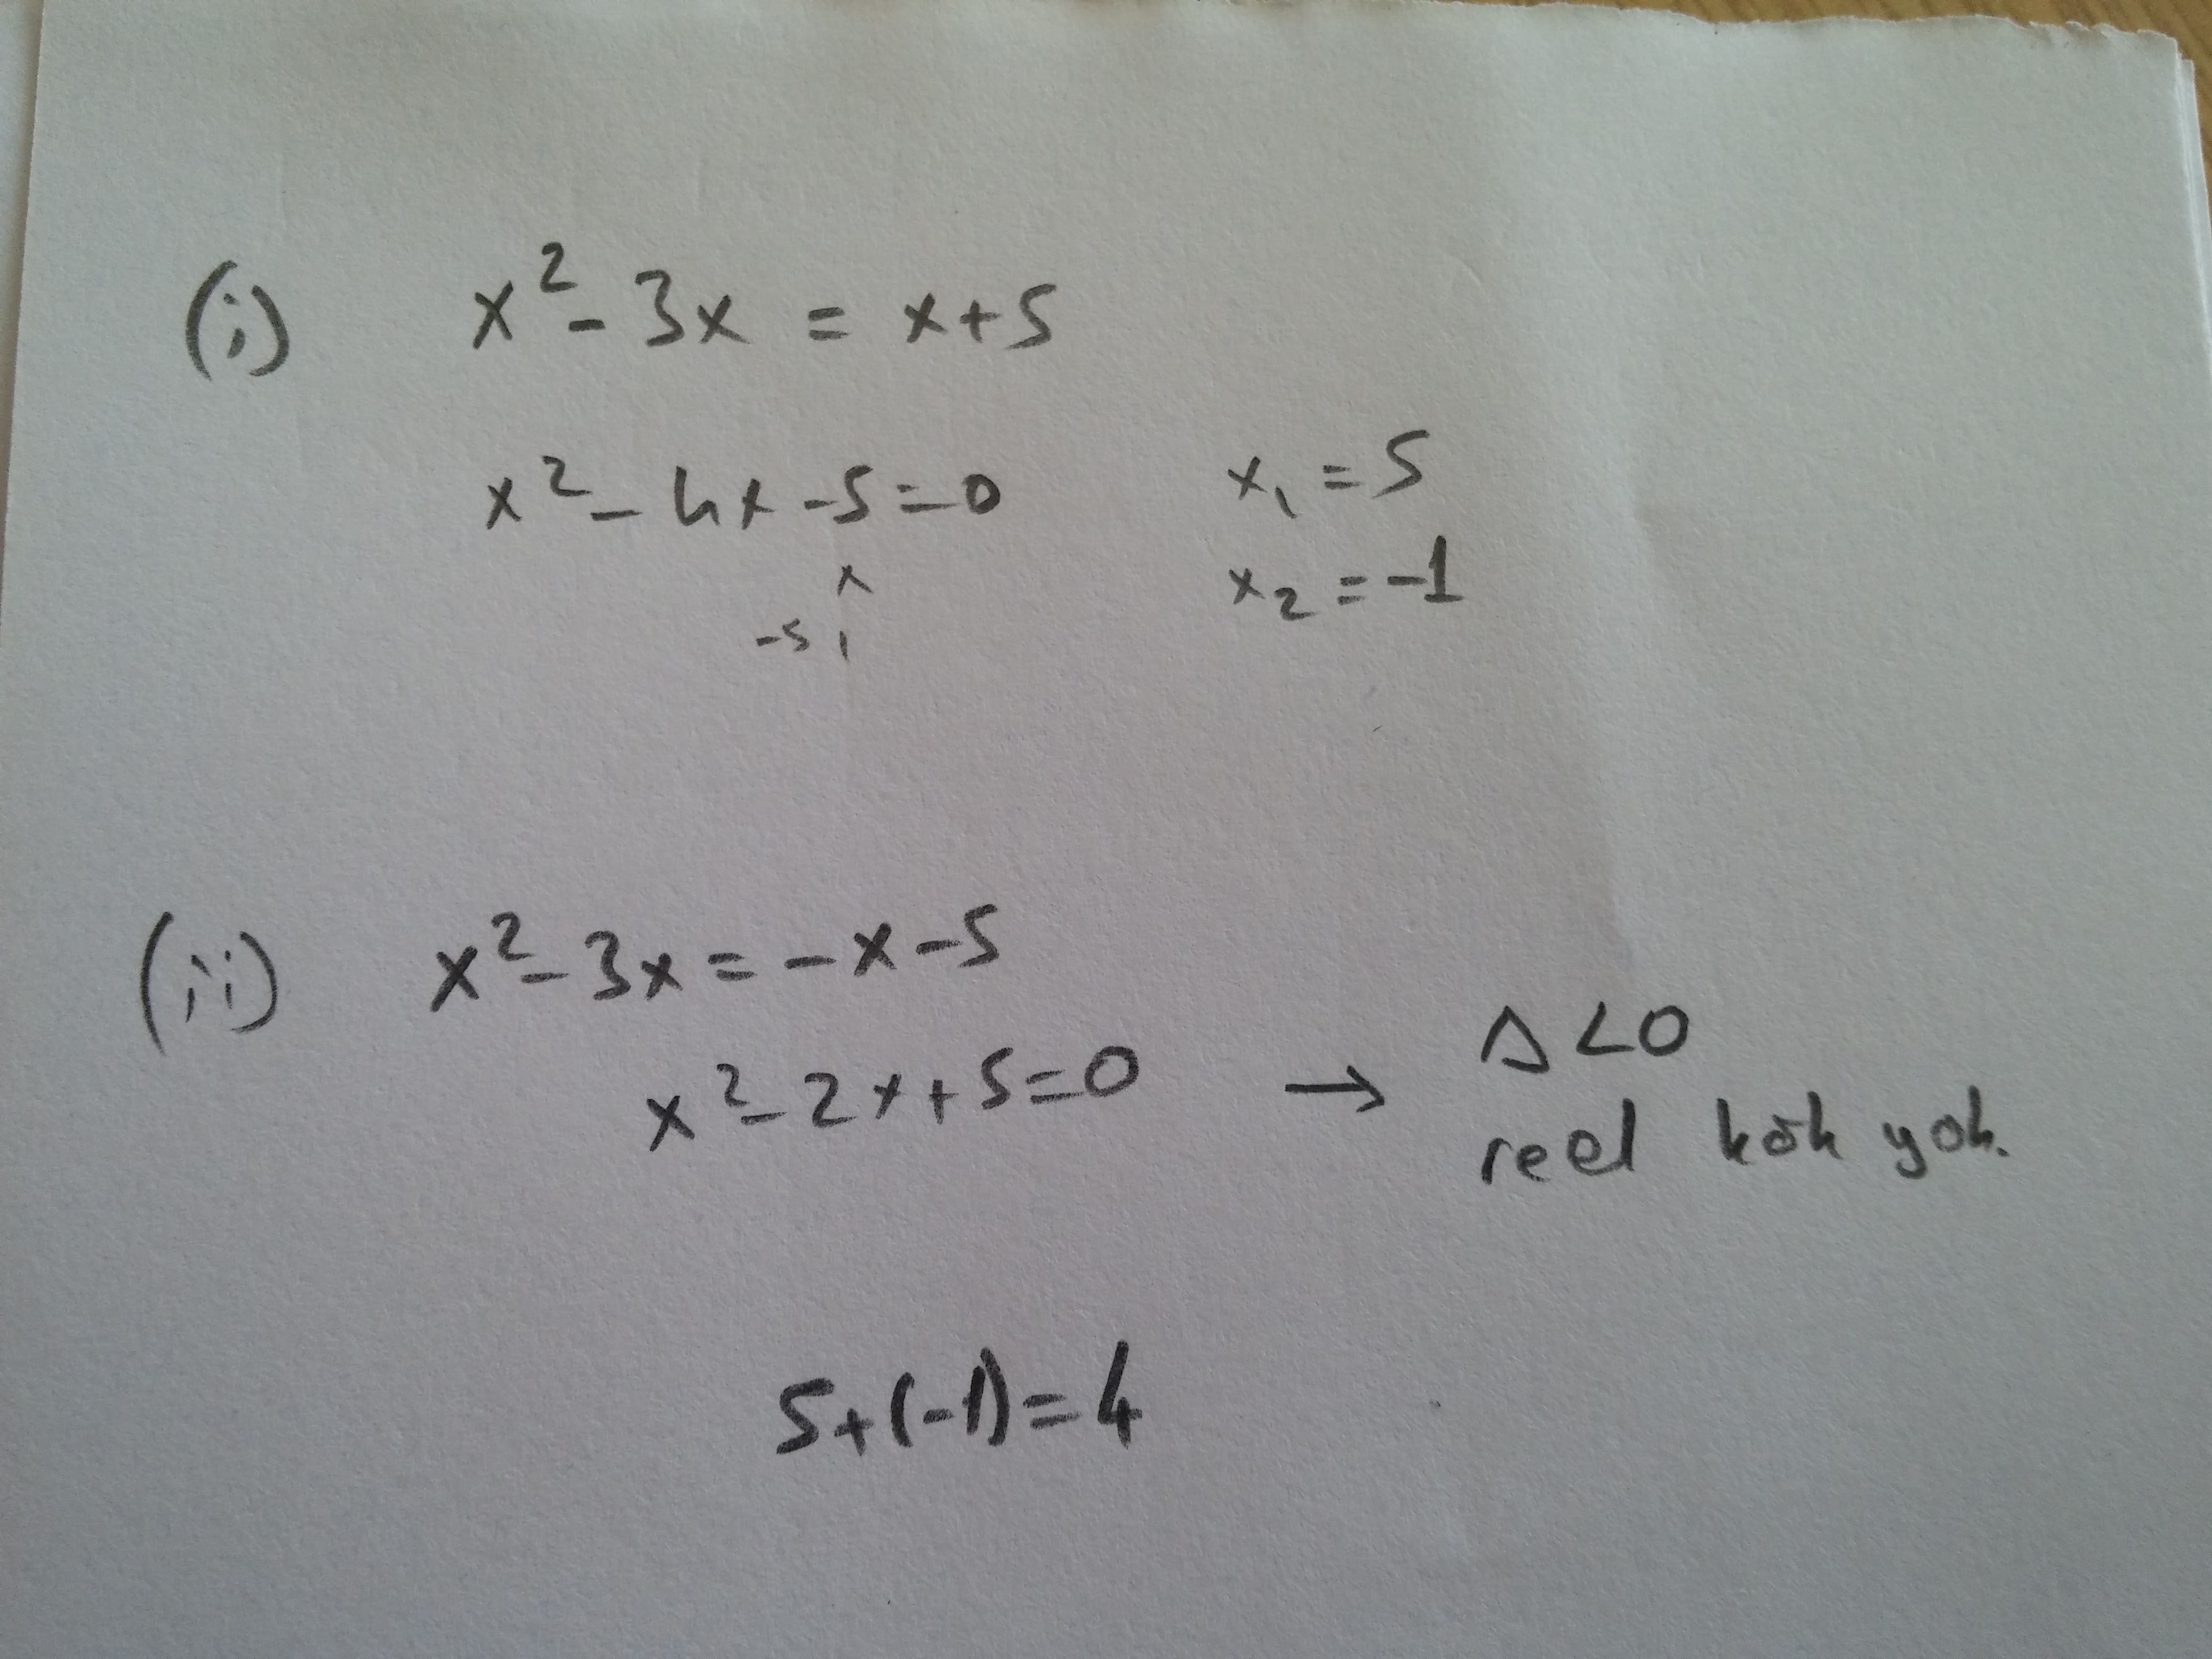 (i) x² - 3x = x+5
x² - 4x - 5 = 0 x₁ = 5
-5 1 x₂ = -1
(ii) x² - 3x = -x - 5
x² - 2x + 5 = 0 → Δ < 0
reel kök yok.
5+(-1) = 4